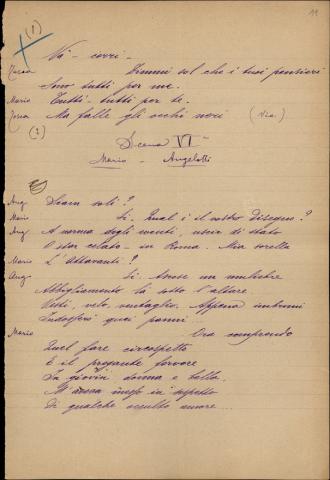 (1)
11
Và - corri -
Tosca Dimmi sol che i tuoi pensieri
Sono tutti per me.
Mario Tutti - tutti per te.
Tosca Ma falle gli occhi neri (Via.)
(2)
Scena VI
Mario - Angelotti
Ang Siam soli?
Mario Sì. Qual è il vostro disegno?
Ang A norma degli eventi, uscir di stato
O star celato - in Roma. Mia sorella
Mario L'Attavanti?
Ang Sì. Ascose un muliebre
Abbigliamento là sotto l'altare
Vesti, velo, ventaglio. Appena imbruni
Indosserò quei panni.
Mario Ora comprendo
Quel fare circospetto
E il pregante fervore
In giovin donna e bella.
M'aveva messo in sospetto
Di qualche occulto amore....